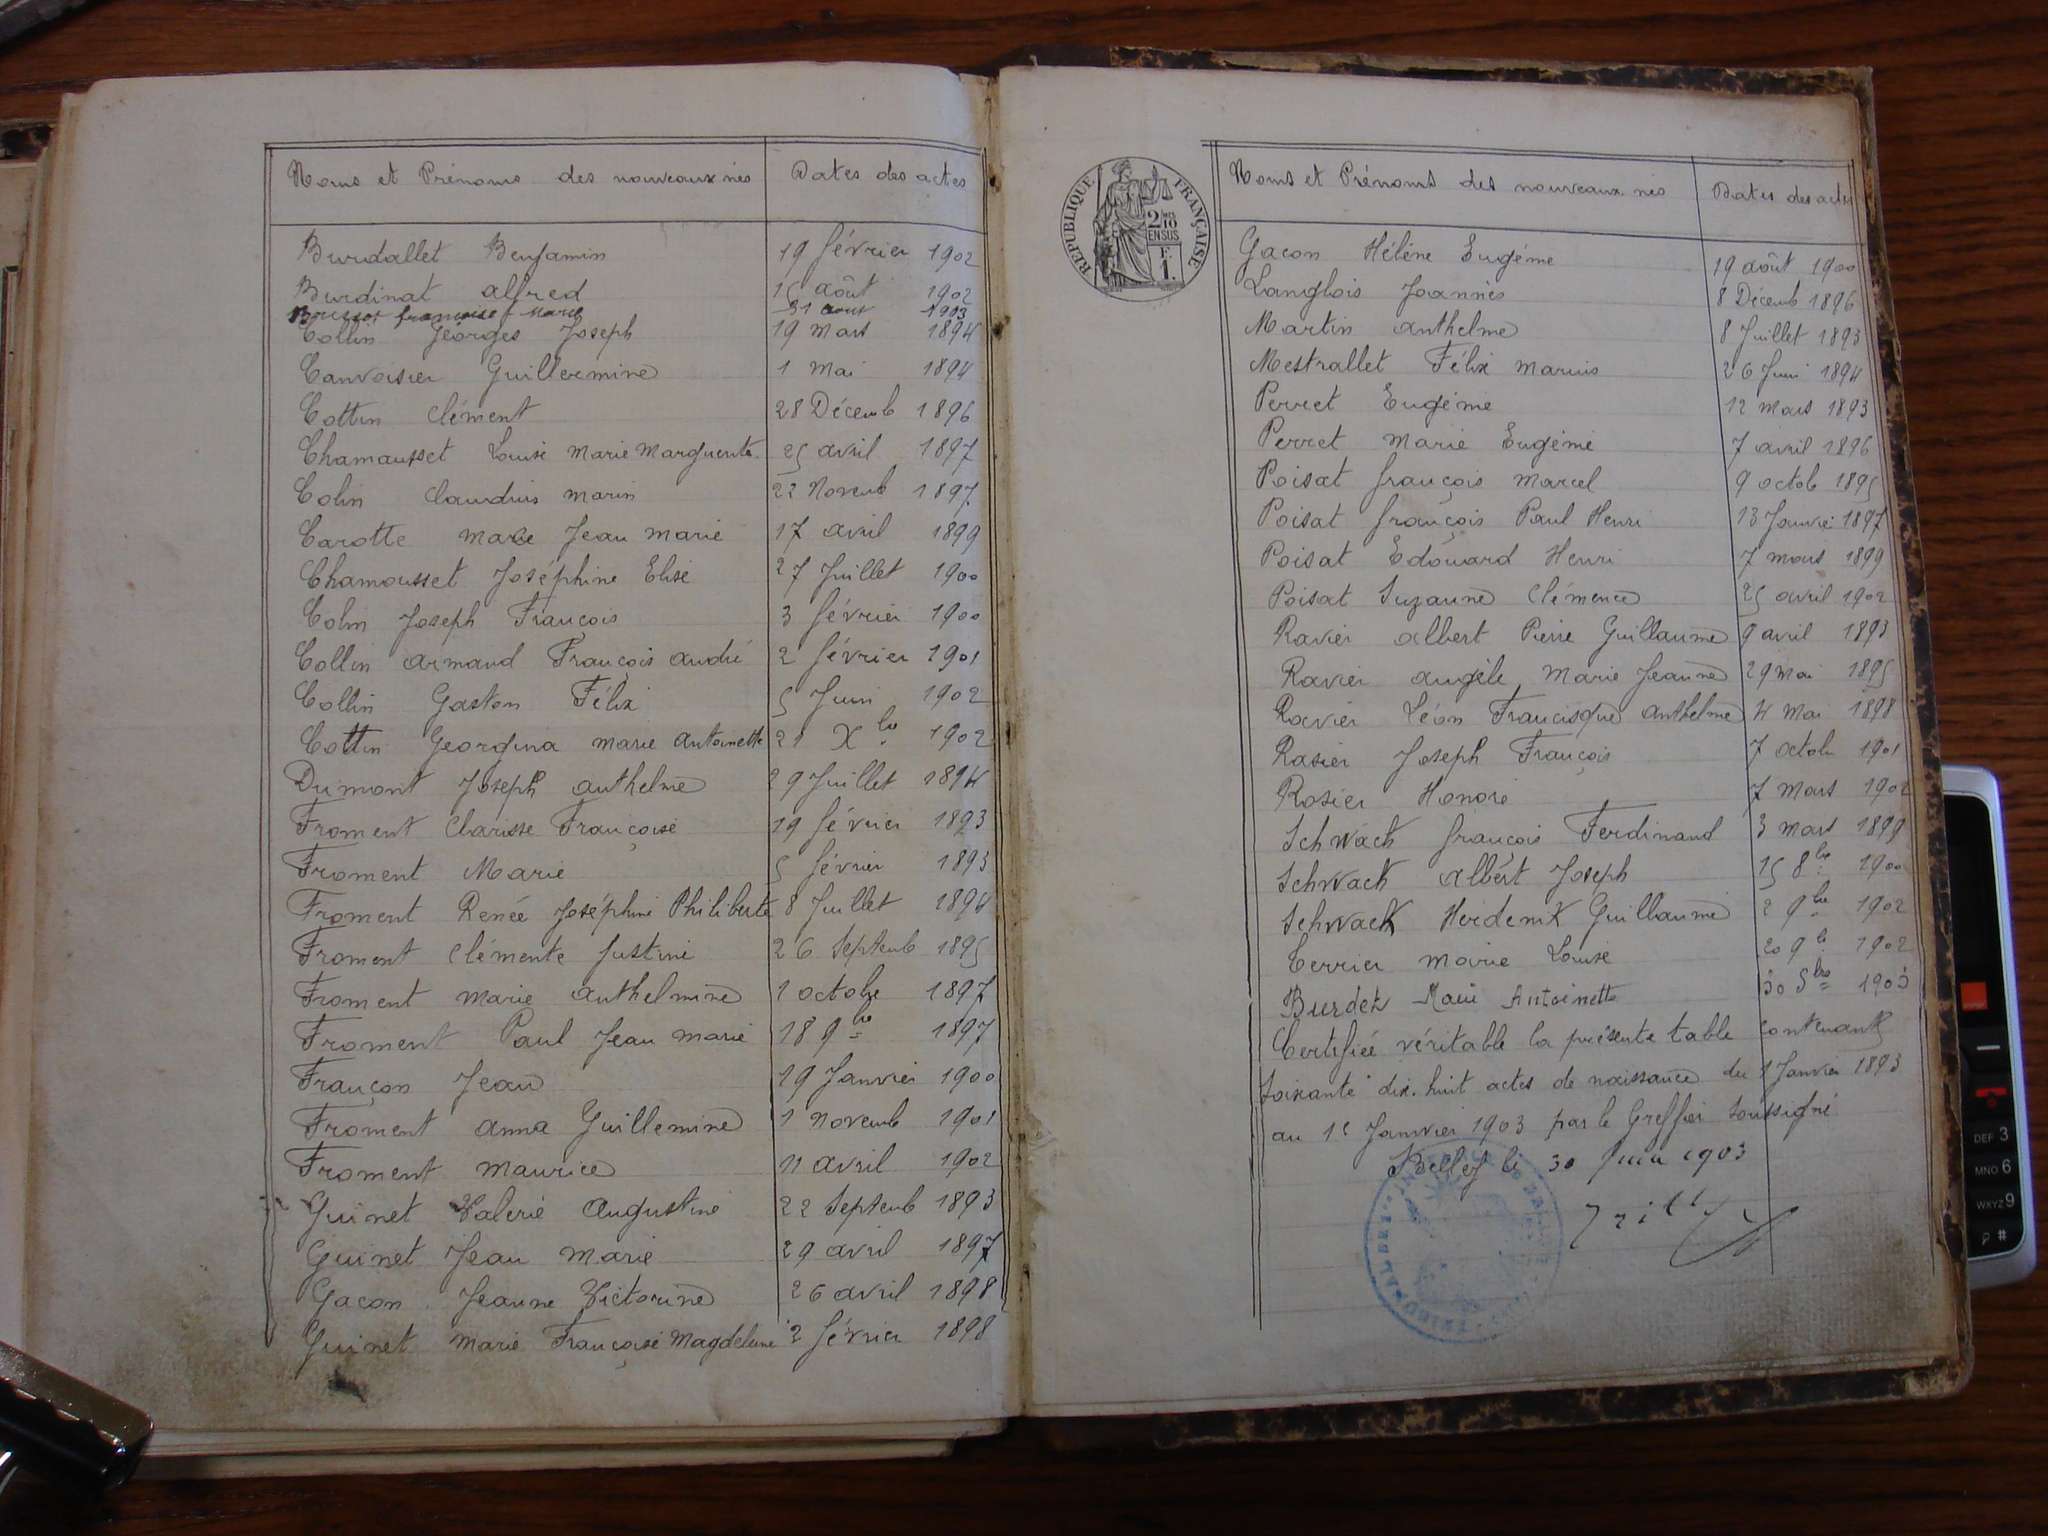 Noms et Prénoms des nouveaux nés Dates des actes
Burdallet Benjamin 19 février 1902
Burdinat alfred 15 août 1902
françoise Marie 31 aout 1903
Collin Georges Joseph 19 mars 1894
Canvoisier Guillermine 1 Mai 1894
Cottin Clément 28 Décemb 1896
Chamausset Louise Marie Marguerite 25 avril 1897
Colin Claudius marin 22 Novemb 1897
Carotte Jean Marie 17 avril 1899
Chamousset Joséphine Elise 27 Juillet 1900
Colin Joseph François 3 février 1900
Collin armand François andré 2 février 1901
Collin Gaston Félix 5 Juin 1902
Cottin Georgina marie antoinette 21 Xbre 1902
Dumont Joseph anthelme 29 Juillet 1894
Froment Clarisse Françoise 19 février 1893
Froment Marie 5 février 1893
Froment Renée Joséphine Philiberte 8 Juillet 1894
Froment Clémente Justine 26 Septemb 1895
Froment marie anthelmine 1 octobre 1897
Froment Paul Jean marie 18 9bre 1897
Françon Jean 19 Janvier 1900
Froment anna Guillemine 1 Novemb 1901
Froment maurice 11 avril 1902
Guinet Valerie Augustine 22 Septemb 1893
Guinet Jean Marie 29 avril 1897
Gacon Jeanne Victorine 26 avril 1898
Guinet Marie Françoise Magdeleine 2 février 1898
REPUBLIQUE FRANÇAISE
2/10 EN SUS
F. 1.
Noms et Prénoms des nouveaux nés Dates des actes
Gacon Hélène Eugénie 19 août 1900
Langlois Joannès 8 Décemb 1896
Martin anthelme 8 Juillet 1893
Mestrallet Félix marius 26 Juin 1894
Perret Eugénie 12 mars 1893
Perret Marie Eugénie 7 avril 1896
Poisat françois Marcel 9 octob 1895
Poisat françois Paul Henri 13 Janvier 1897
Poisat Edouard Henri 7 mars 1899
Poisat Suzanne Clémence 25 avril 1902
Ravier albert Pierre Guillaume 9 avril 1893
Ravier angèle Marie Jeanne 29 mai 1895
Ravier Léon Francisque anthelme 4 Mai 1898
Rasier Joseph François 7 octob 1901
Rosier Honoré 7 Mars 1902
Schwack françois Ferdinand 3 mars 1899
Schwack albert Joseph 15 8bre 1900
Schwack Herdenik Guillaume 2 9bre 1902
Terrier Marie Louise 20 9bre 1902
Burdet Marie Antoinette 30 1903
Certifiée véritable la présente table contenant
soixante dix. huit actes de naissance du 1 Janvier 1893
au 1er Janvier 1903 par le Greffier soussigné
Belley le 30 Juin 1903
DEF 3
MNO 6
WXYZ 9
#